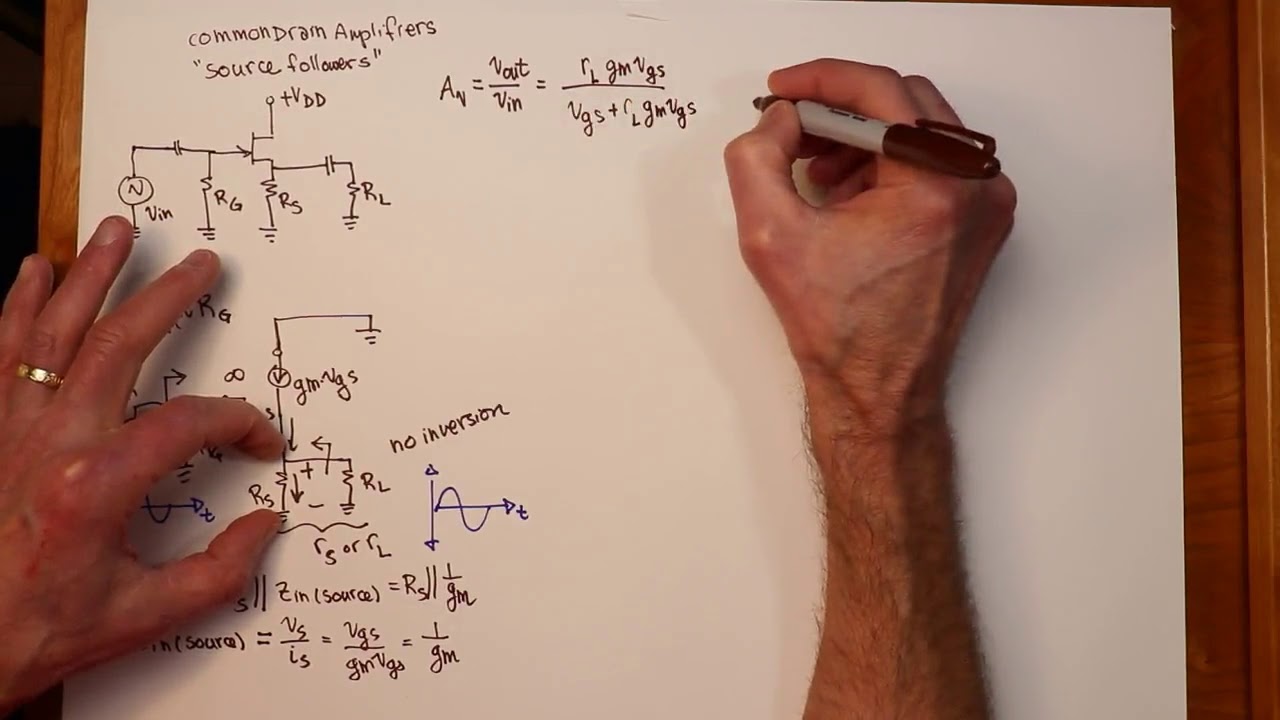 common Drain Amplifiers
"source followers"
+VDD
Vin
RG
RS
RL
Av = vout/vin = rL gm vgs / vgs + rL gm vgs
RG
∞
gm·vgs
s
no inversion
+
RS
RL
−
t
t
rs or rL
s || zin (source) = Rs || 1/gm
in (source) = vs/is = vgs/gm vgs = 1/gm